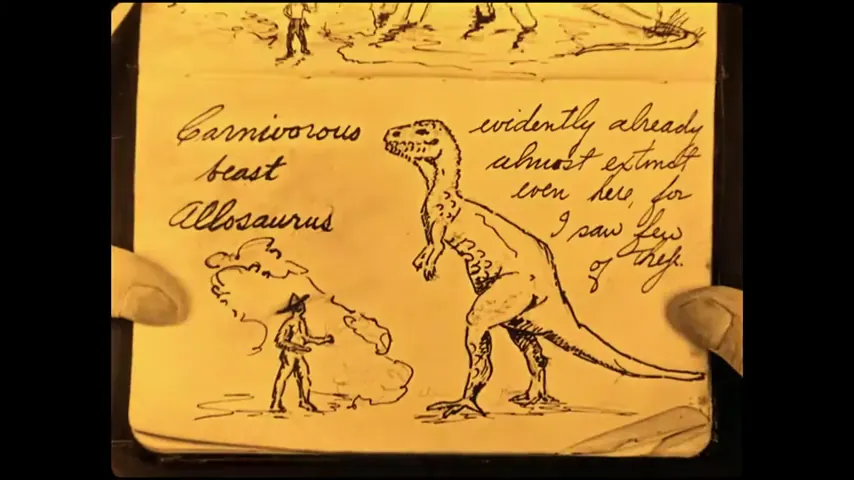 Carnivorous
beast
Allosaurus
evidently already
almost extinct
even here, for
I saw few
of these.